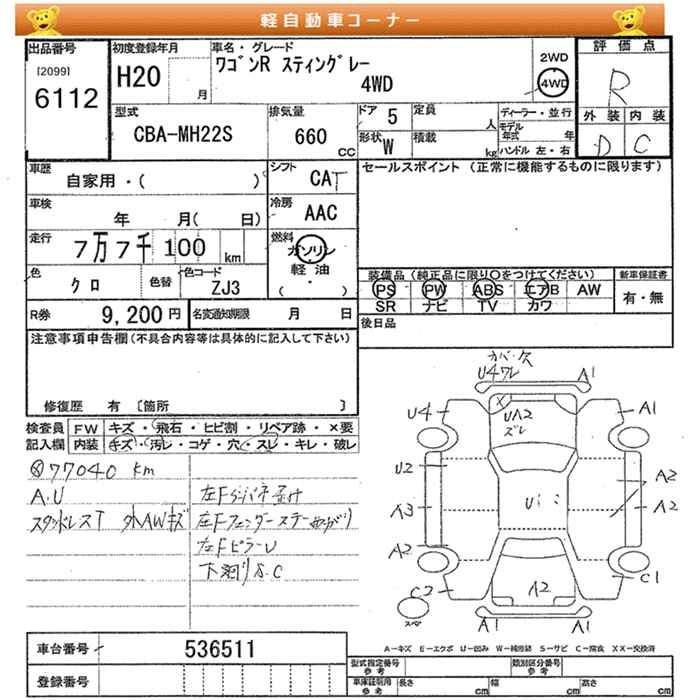 軽自動車コーナー
出品番号 初度登録年月 車名・グレード 2WD 評価点
[2099] H20 月 ワゴンR スティングレー 4WD 4WD R
6112
型式 排気量 ドア 5 定員 人 ディーラー・並行 外装 内装
CBA-MH22S 660 CC 形状 W 積載 kg モデル年式 年 D C
ハンドル 左・右
車歴 自家用・( ) シフト CAT セールスポイント (正常に機能するものに限ります)
車検 年 月( 日) 冷房 AAC
走行 7万7千100 km 燃料 ガソリン
軽油
( )
色 クロ 色替 色コード ZJ3
装備品(純正品に限り○をつけてください) 新車保証書
PS PW ABS エアB AW 有・無
SR ナビ TV カワ
R券 9,200円 名変通知期限 月 日 後日品
注意事項申告欄(不具合内容等は具体的に記入して下さい)
修復歴 有 〔箇所 〕
検査員 FW キズ・飛石・ヒビ割・リペア跡・×要
記入欄 内装 キズ・汚レ・コゲ・穴・スレ・キレ・破レ
77040 km
A.U
スタッドレスT 外AWキズ
左Fピラーu
下廻りS.C
U4ワレ A1
U4 UA2 A1
ズレ
U2 A2
A3 A2
A2
C2 A2 C1
スペア A1 A1
A-キズ E-エクボ U-凹み W-補修跡 S-サビ C-腐食 XX-交換済
車台番号 536511
登録番号
型式指定番号 参考 類別区分番号 参考
車庫証明用 参考 長さ cm 幅 cm 高さ cm